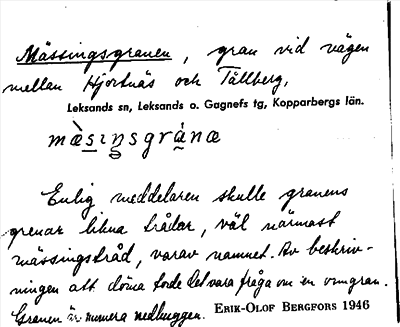 Mässingsgranen, gran vid vägen
mellan Hjortnäs och Tällberg,
Leksands sn, Leksands o. Gagnefs tg, Kopparbergs län.
mæ̀sıŋsgrànæ
Enlig meddelaren skulle granens
grenar likna trådar, väl närmast
mässingstråd, varav namnet. Av beskriv-
ningen att döma torde det vara fråga om en ormgran.
Granen är numera nedhuggen. ERIK-OLOF BERGFORS 1946